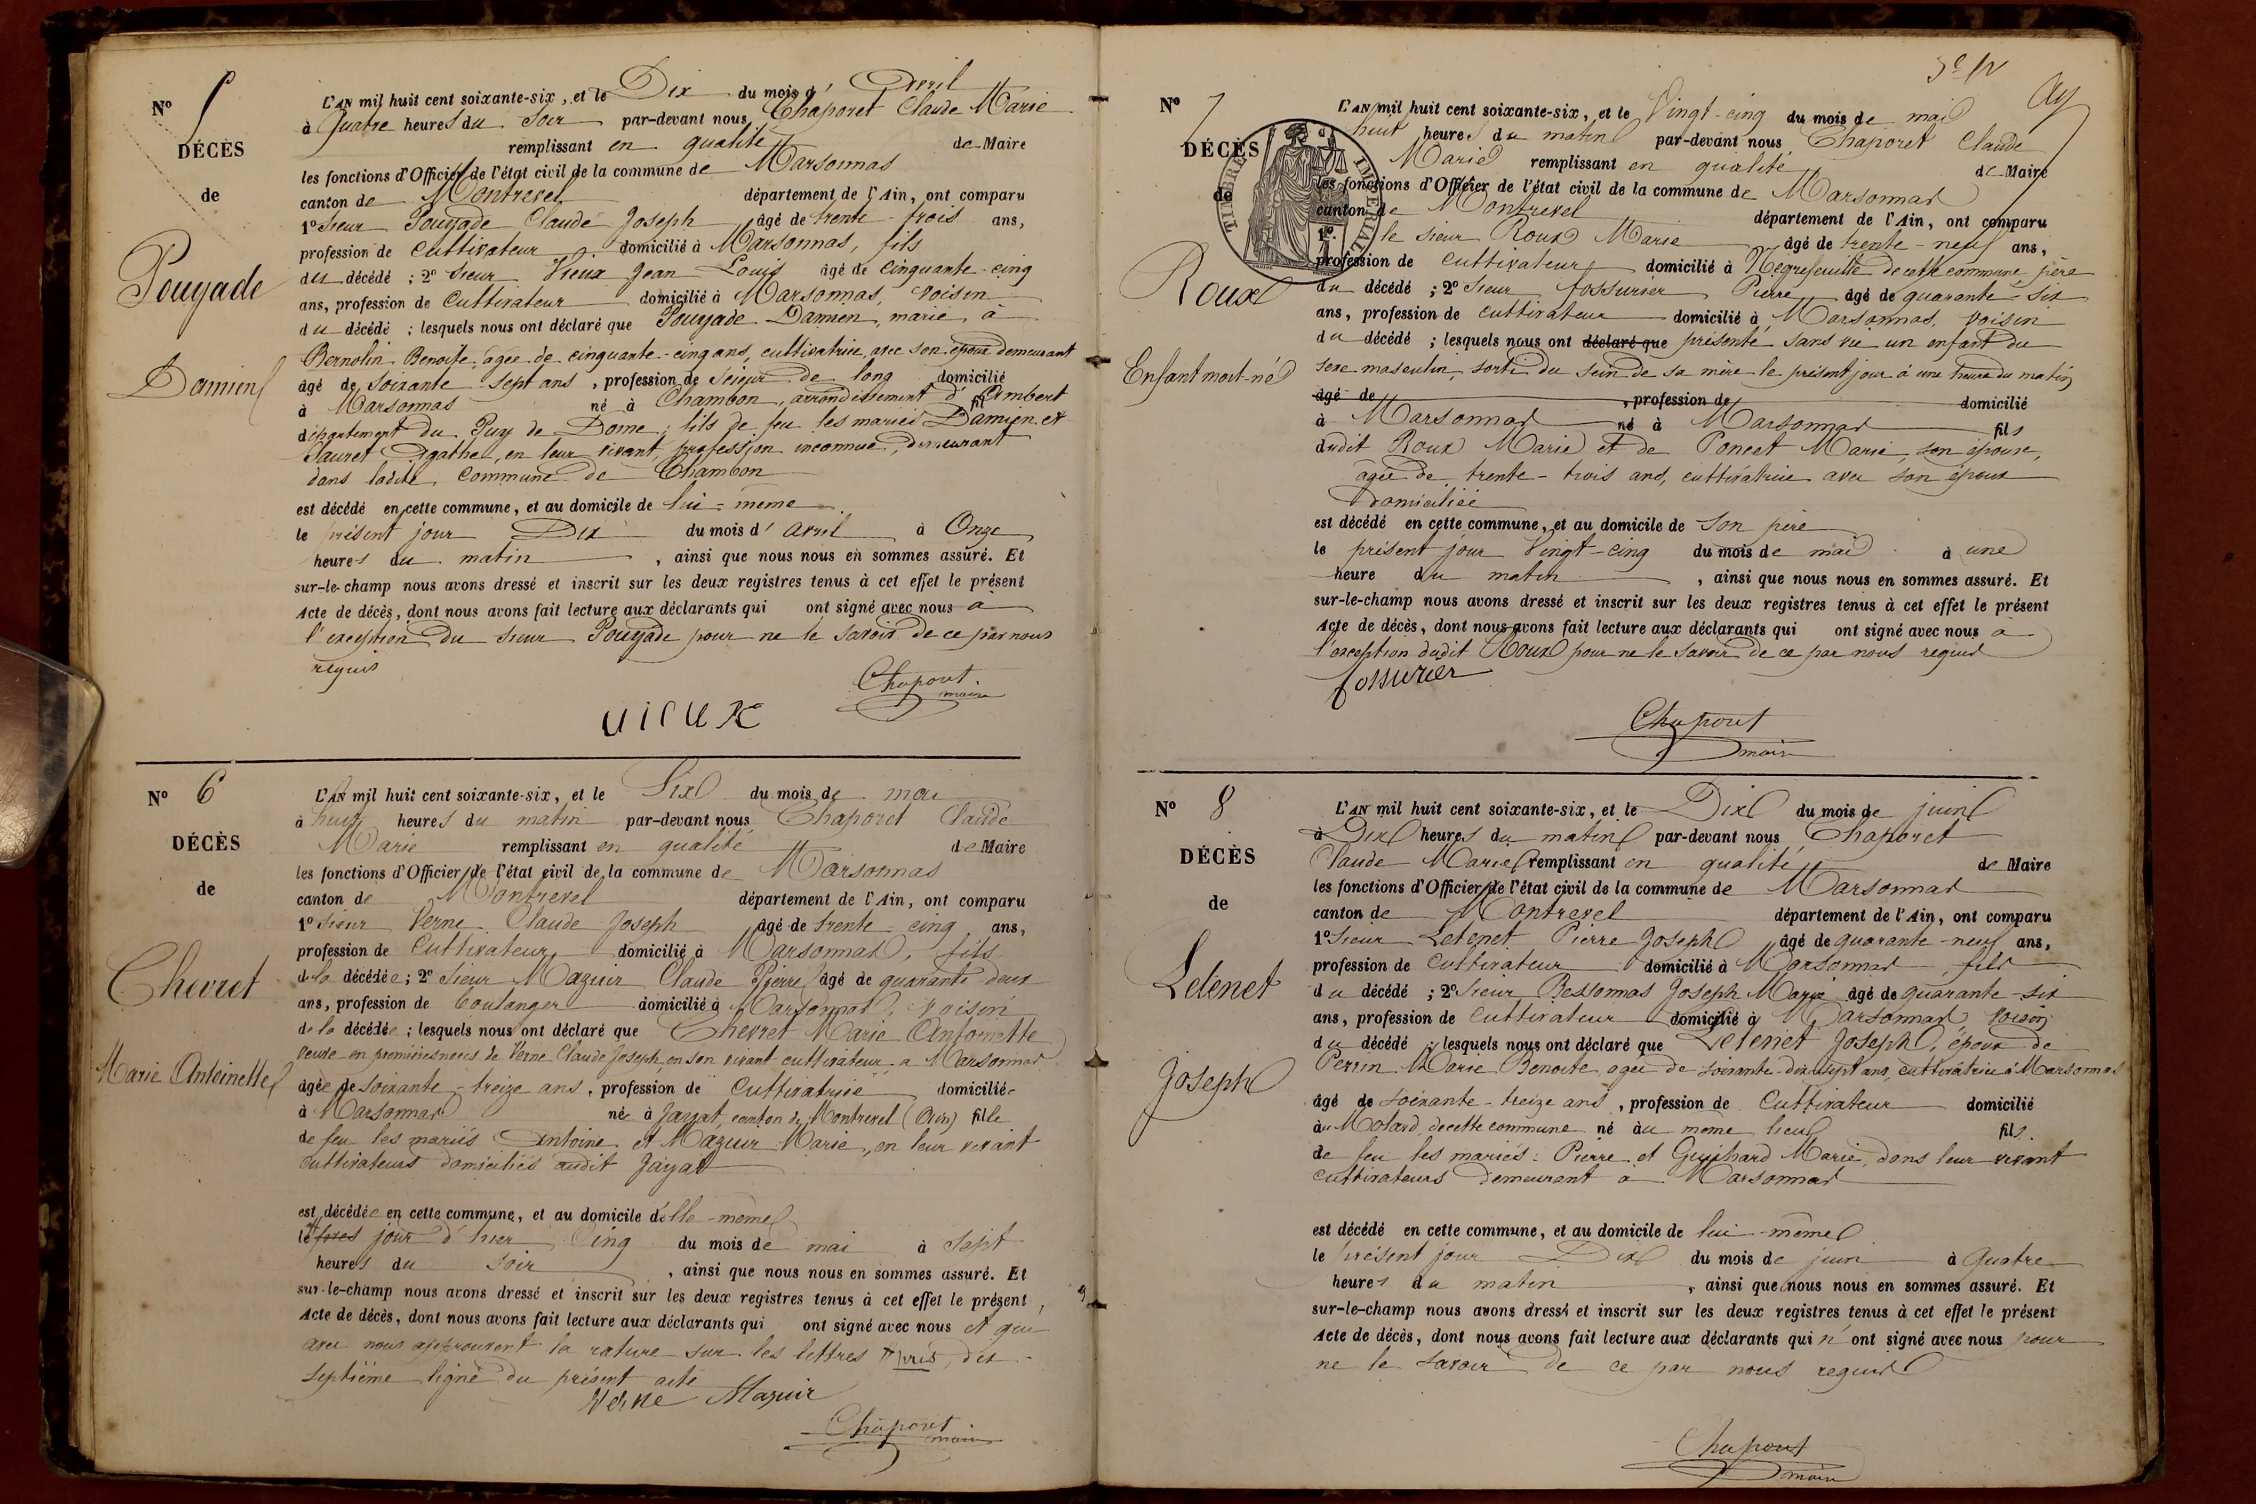 N° 5
DÉCÈS
de
Pouyade
Damien
L'AN mil huit cent soixante-six, et le Dix du mois d' Avril
à Quatre heures du Soir par-devant nous Chaporet Claude Marie
remplissant en qualité de Maire
les fonctions d'Officier de l'état civil de la commune de Marsonnas
canton de Montrevel département de l'Ain, ont comparu
1° Sieur Pouyade Claude Joseph âgé de trente-trois ans,
profession de Cultivateur domicilié à Marsonnas, fils
du décédé ; 2° Sieur Vieux Jean Louis âgé de Cinquante-cinq
ans, profession de Cultivateur domicilié à Marsonnas, voisin
du décédé ; lesquels nous ont déclaré que Pouyade Damien, marié à
Bernolin Benoite, agée de cinquante-cinq ans, cultivatrice, avec son époux demeurant
âgé de Soixante sept ans, profession de Scieur de long domicilié
à Marsonnas né à Chambon, arrondissement d'Ambert fil
département du Puy de Dome ; fils de feu les mariés Damien et
Sauret Agathe, en leur vivant, profession inconnue, demeurant
dans ladite commune de Chambon
est décédé en cette commune, et au domicile de lui-même
le présent jour Dix du mois d' avril à Onze
heures du matin, ainsi que nous nous en sommes assuré. Et
sur-le-champ nous avons dressé et inscrit sur les deux registres tenus à cet effet le présent
Acte de décès, dont nous avons fait lecture aux déclarants qui ont signé avec nous à
l'exception du sieur Pouyade pour ne le savoir de ce par nous
requis
Chaporet
maire
vieux
N° 6
DÉCÈS
de
Chevret
Marie Antoinette
L'AN mil huit cent soixante-six, et le Six du mois de mai
à huit heures du matin par-devant nous Chaporet Claude
Marie remplissant en qualité de Maire
les fonctions d'Officier de l'état civil de la commune de Marsonnas
canton de Montrevel département de l'Ain, ont comparu
1° Sieur Verne Claude Joseph âgé de trente cinq ans,
profession de Cultivateur domicilié à Marsonnas, fils
de la décédée ; 2° Sieur Mazuir Claude Pierre âgé de quarante deux
ans, profession de boulanger domicilié à Marsonnas, voisin
de la décédée ; lesquels nous ont déclaré que Chevret Marie Antoinette
veuve en premières noces de Verne Claude Joseph, en son vivant cultivateur à Marsonnas
âgée de soixante-treize ans, profession de Cultivatrice domiciliée
à Marsonnas née à Jayat, canton de Montrevel (Ain) fille
de feu les mariés Antoine et Mazuir Marie, en leur vivant
cultivateurs domiciliés audit Jayat
est décédée en cette commune, et au domicile d'elle-même
le jour d'hier Cinq du mois de mai à Sept
heures du soir, ainsi que nous nous en sommes assuré. Et
sur-le-champ nous avons dressé et inscrit sur les deux registres tenus à cet effet le présent
Acte de décès, dont nous avons fait lecture aux déclarants qui ont signé avec nous et qui
avec nous approuvent la rature sur les lettres prés, dix
septième ligne du présent acte
Verne Mazuir
Chaporet
maire
N° 7
DÉCÈS
de
TIMBRE IMPERIAL
Roux
Enfant mort-né
L'AN mil huit cent soixante-six, et le Vingt-cinq du mois de mai
huit heures du matin par-devant nous Chaporet Claude
Marie remplissant en qualité de Maire
les fonctions d'Officier de l'état civil de la commune de Marsonnas
canton de Montrevel département de l'Ain, ont comparu
1° le sieur Roux Marie âgé de trente-neuf ans,
profession de cultivateur domicilié à Négrefeuille de cette commune père
du décédé ; 2° Sieur fossurier Pierre âgé de quarante-six
ans, profession de cultivateur domicilié à Marsonnas, voisin
du décédé ; lesquels nous ont déclaré que présenté sans vie un enfant du
sexe masculin, sorti du sein de sa mère le présent jour à une heure du matin
âgé de, profession de domicilié
à Marsonnas né à Marsonnas fils
dudit Roux Marie et de Poncet Marie, son épouse,
agée de trente-trois ans, cultivatrice avec son époux
Domiciliée
est décédé en cette commune, et au domicile de son père
le présent jour Vingt-cinq du mois de mai à une
heure du matin, ainsi que nous nous en sommes assuré. Et
sur-le-champ nous avons dressé et inscrit sur les deux registres tenus à cet effet le présent
Acte de décès, dont nous avons fait lecture aux déclarants qui ont signé avec nous à
l'exception dudit Roux pour ne le savoir de ce par nous requis
fossurier
Chaporet
maire
N° 8
DÉCÈS
de
Letenet
Joseph
L'AN mil huit cent soixante-six, et le Dix du mois de juin
à Dix heures du matin par-devant nous Chaporet
Claude Marie remplissant en qualité de Maire
les fonctions d'Officier de l'état civil de la commune de Marsonnas
canton de Montrevel département de l'Ain, ont comparu
1° Sieur Letenet Pierre Joseph âgé de quarante-neuf ans,
profession de Cultivateur domicilié à Marsonnas, fils
du décédé ; 2° Sieur Bessonnas Joseph Marie âgé de quarante-six
ans, profession de Cultivateur domicilié à Marsonnas voisin
du décédé ; lesquels nous ont déclaré que Letenet Joseph, époux de
Perrin Marie Benoite, agée de soixante-dix-sept ans, cultivatrice à Marsonnas
âgé de soixante-treize ans, profession de Cultivateur domicilié
au Molard de cette commune né au même lieu fils
de feu les mariés : Pierre et Guichard Marie, dans leur vivant
cultivateurs demeurant à Marsonnas
est décédé en cette commune, et au domicile de lui-même
le présent jour Dix du mois de juin à Quatre
heures du matin, ainsi que nous nous en sommes assuré. Et
sur-le-champ nous avons dressé et inscrit sur les deux registres tenus à cet effet le présent
Acte de décès, dont nous avons fait lecture aux déclarants qui n'ont signé avec nous pour
ne le savoir de ce par nous requis
Chaporet
maire